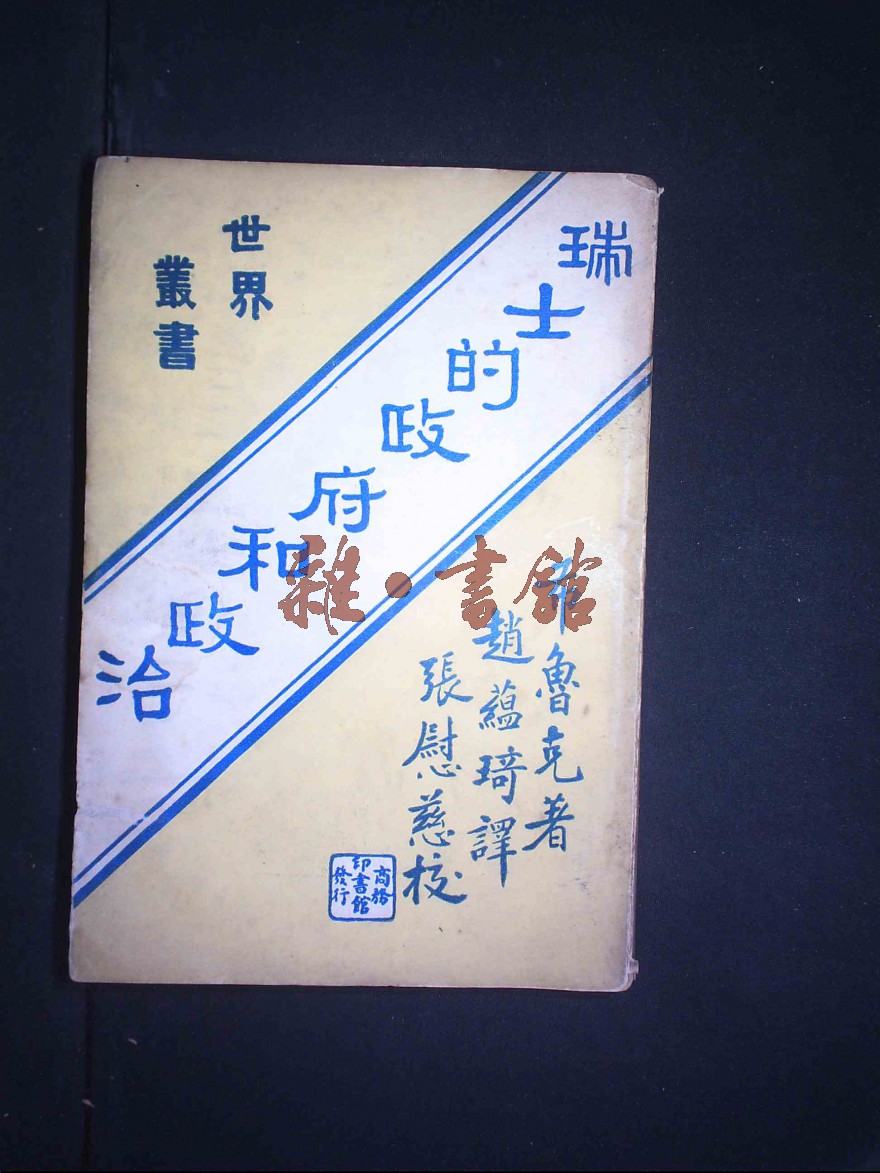 世界
叢書
瑞士的政府和政治
布魯克著
趙蘊琦譯
張慰慈校
商務
印書館
發行
雜·書館